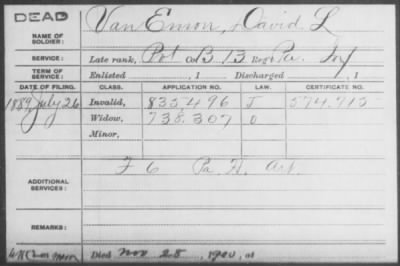 DEAD
NAME OF SOLDIER: Van Emon, David L
SERVICE: Late rank, Pvt Co. B, 13 Reg't Pa. Inf
TERM OF SERVICE: Enlisted , 1 Discharged , 1
DATE OF FILING. CLASS. APPLICATION NO. LAW. CERTIFICATE NO.
1889 July 26 Invalid, 835.496 J 574.715
Widow, 738.307 O
Minor,
ADDITIONAL SERVICES: F 6 Pa. H. Art.
REMARKS:
Died Nov 28, 1900, at